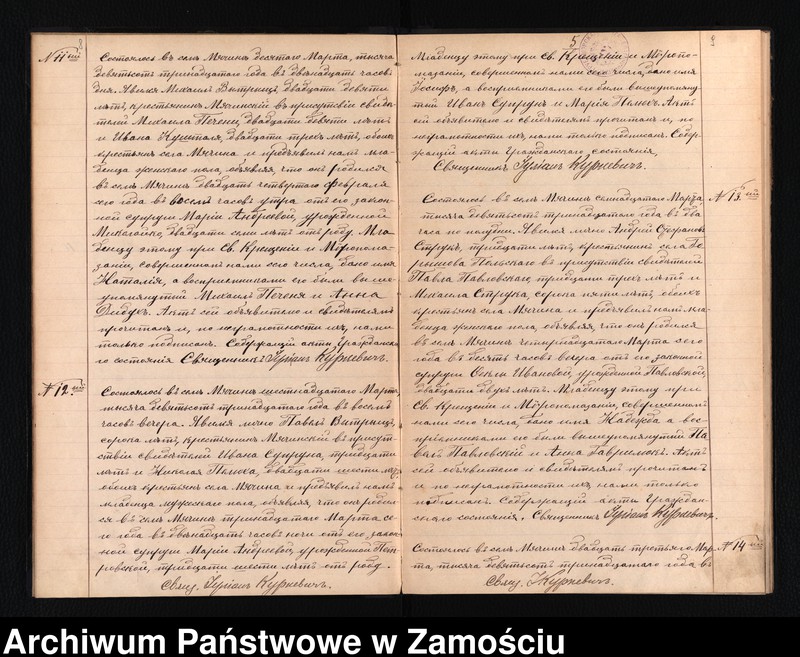 № 11ый
Состоялось въ селѣ Мячинѣ десятаго Марта, тысяча
девятьсотъ тринадцатаго года въ двѣнадцать часовъ
дня. Явился Михаилъ Витрищъ, двадцати девяти
лѣтъ, крестьянинъ Мячинскій въ присутствіи свидѣ-
телей Михаила Печени, двадцати девяти лѣтъ
и Ивана двадцати трехъ лѣтъ, обоихъ
крестьянъ села Мячина и предъявилъ намъ мла-
денца женскаго пола, объявляя, что онъ родился
въ селѣ Мячинѣ двадцать четвертаго Февраля
сего года въ восемь часовъ утра отъ его закон-
ной супруги Маріи Андреевой, урожденной
двадцати семи лѣтъ отъ роду. Мла-
денцу этому при Св. Крещеніи и Мѵропома-
заніи, совершенномъ нами сего числа, дано имя
Наталія, а воспріемниками его были выше-
упомянутый Михаилъ Печеня и Анна
Актъ сей объявителю и свидѣтелямъ
прочитанъ и, по неграмотности ихъ, нами
только подписанъ. Содержащій акты гражданска-
го состоянія. Священникъ Іуліанъ Куркевичъ.
№ 12ый
Состоялось въ селѣ Мячинѣ шестнадцатаго Марта,
тысяча девятьсотъ тринадцатаго года въ восемь
часовъ вечера. Явился лично Павелъ Витрищъ,
сорока лѣтъ, крестьянинъ Мячинскій въ присут-
ствіи свидѣтелей Ивана Супруна, тридцати
лѣтъ и Николая двадцати шести лѣтъ,
обоихъ крестьянъ села Мячина и предъявилъ намъ
младенца мужескаго пола, объявляя, что онъ родил-
ся въ селѣ Мячинѣ тринадцатаго Марта се-
го года въ двѣнадцать часовъ ночи отъ его, закон-
ной супруги Маріи Андреевой, урожденной Пет-
ровской, тридцати шести лѣтъ отъ роду.
Свящ. Іуліанъ Куркевичъ.
5
Младенцу этому при Св. Крещеніи и Мѵропо-
мазаніи, совершенномъ нами сего числа, дано имя
Іосифъ, а воспріемниками его были вышеупомяну-
тый Иванъ Супрунъ и Марія Актъ
сей объявителю и свидѣтелямъ прочитанъ и, по
неграмотности ихъ, нами только подписанъ. Содер-
жащій акты гражданскаго состоянія,
Священникъ Іуліанъ Куркевичъ.
№ 13ый
Состоялось въ селѣ Мячинѣ семнадцатаго Марта,
тысяча девятьсотъ тринадцатаго года въ два
часа по полудни. Явился лично Андрей
Струкъ, тридцати лѣтъ, крестьянинъ села
Польскаго въ присутствіи свидѣтелей
Павла Павловскаго, тридцати трехъ лѣтъ и
Михаила Струка, сорока пяти лѣтъ, обоихъ
крестьянъ села Мячина и предъявилъ намъ мла-
денца женскаго пола, объявляя, что онъ родился
въ селѣ Мячинѣ четырнадцатаго Марта сего
года въ десять часовъ вечера отъ его законной
супруги Ивановой, урожденной Павловской,
двадцати двухъ лѣтъ. Младенцу этому при
Св. Крещеніи и Мѵропомазаніи, совершенномъ
нами сего числа, дано имя Надежда а вос-
пріемниками его были вышеупомянутый Па-
велъ Павловскій и Анна Актъ
сей объявителю и свидѣтелямъ прочитанъ
и по неграмотности ихъ нами только
подписанъ. Содержащій акты граждан-
скаго состоянія. Священникъ Іуліанъ Куркевичъ.
№ 14ый
Состоялось въ селѣ Мячинѣ двадцать третьяго Мар-
та, тысяча девятьсотъ тринадцатаго года въ
Свящ. І Куркевичъ.
Archiwum Państwowe w Zamościu